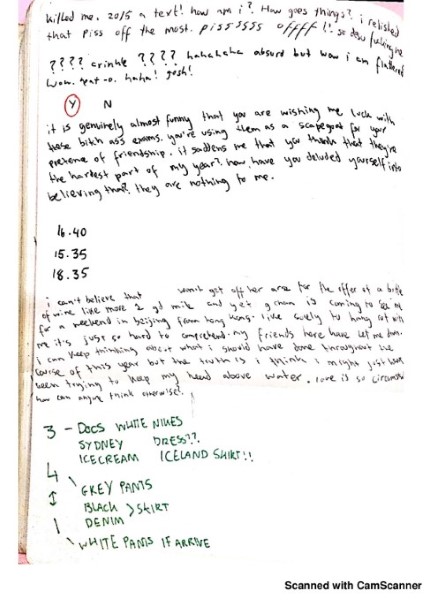 killed me. 2015 a text! how am i? How goes things? i relished
that piss off the most. pissssss offfff!! so
???? crinkle ???? hahahaha absurd but wow i am flattered
wow. haha! gosh!
Y N
it is genuinely almost funny that you are wishing me luck with
these bitch ass exams. you're using them as a scapegoat for your
pretense of friendship. it saddens me that you think that they're
the hardest part of my year? how have you deluded yourself into
believing that? they are nothing to me.
16.40
15.35
18.35
i can't believe that won't get off her arse for the offer of a bottle
of wine like move 2 gd mile and yet is coming to see me
for a weekend in beijing from hong kong. like solely to hang out with
me it's just so hard to comprehend. my friends here have let me down.
i can keep thinking about what i should have done throughout the
course of this year but the truth is i think i might just have
been trying to keep my head above water. love is so
how can anyone think otherwise!
3 - DOCS WHITE NIKES
SYDNEY DRESS??
ICECREAM ICELAND SHIRT!!
4
GREY PANTS
BLACK > SHIRT
DENIM
1
WHITE PANTS IF ARRIVE
Scanned with CamScanner